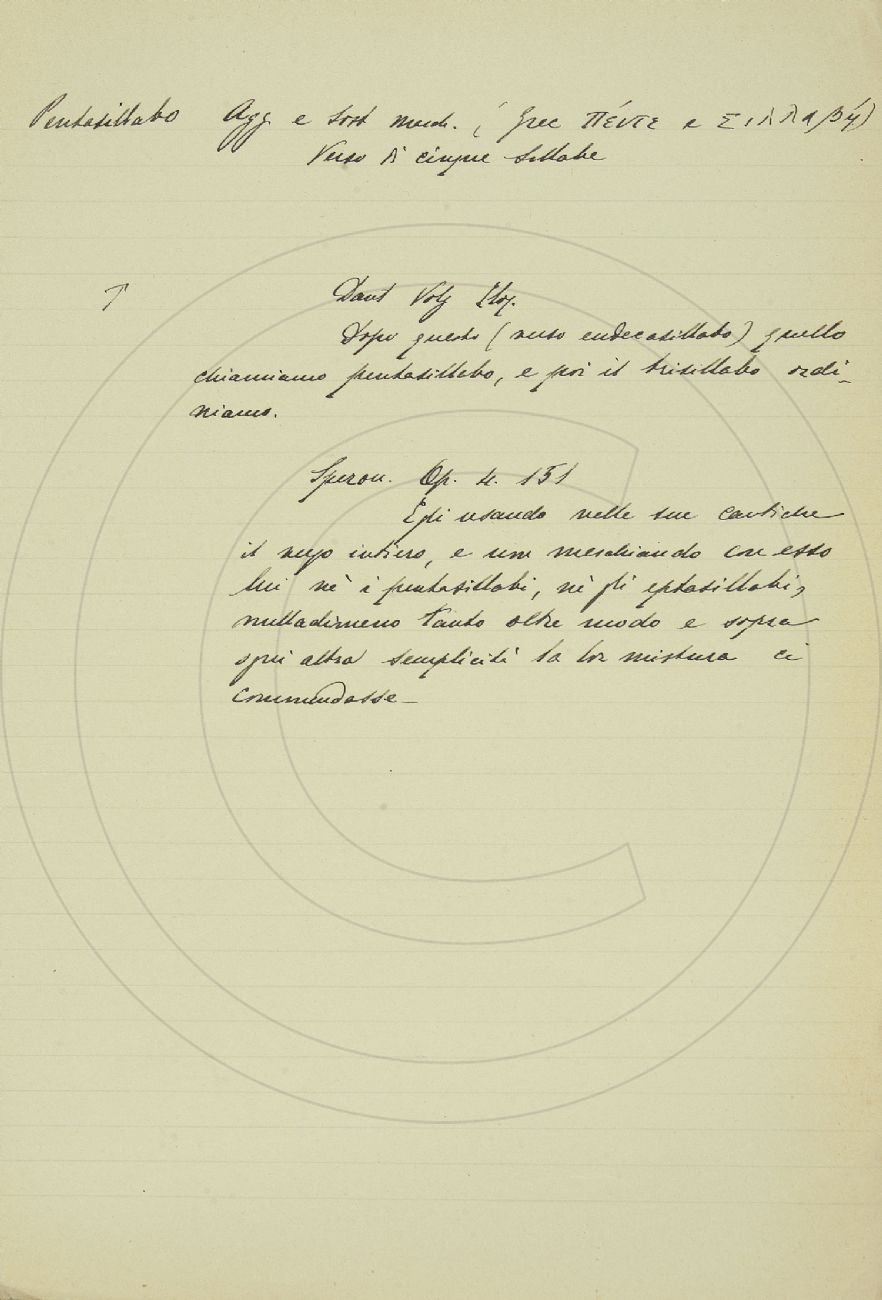 Pentasillabo Agg. e sost masch. ( Grec πέντε e Σιλλαβή)
Verso di cinque sillabe
Dant Volg Eloq.
Dopo questo (verso endecasillabo) quello
chiamiamo pentasillabo, e poi il trisillabo ordi-
niamo.
Speron. Op. 4. 151
Egli usando nelle sue cantiche
il verso intiero, e non meschiando con esso
lui nè i pentasillabi, nè gli eptasillabi,
nulladimeno tanto oltre modo e sopra
ogni altra semplicità la lor mistura ci
commendasse